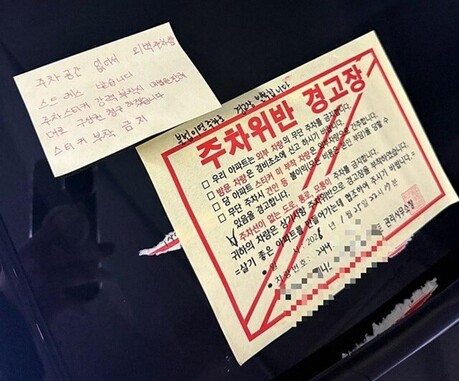 주차 공간 없어서 외벽주차함
스트레스 받습니다
주차스티커 강력 부착시
대로 구상권 청구 하겠습니다
스티커 부착 금지
부탁 드립니다
주차위반 경고장
□ 우리 아파트는 외부 차량의 무단 주차를 금지합니다.
□ 방문 차량은 경비초소에 신고 하시기 바랍니다.
□ 당 아파트 스티커 미 부착 차량은 외부차량으로 간주합니다.
□ 무단 주차시 견인 등 불이익(모든 비용은 본인 부담)을 당할 수
있음을 경고합니다.
□ 주차선이 없는 도로, 통로, 모퉁이 주차를 금지합니다.
귀하의 차량은 상기사항 주차위반으로 경고장을 부착하였습니다.
=살기 좋은 아파트를 만들어가는데 협조하여 주시기 바랍니다.=
일시 : 202 년 월 25일 22시 분
차량번호 :
관리사무소장